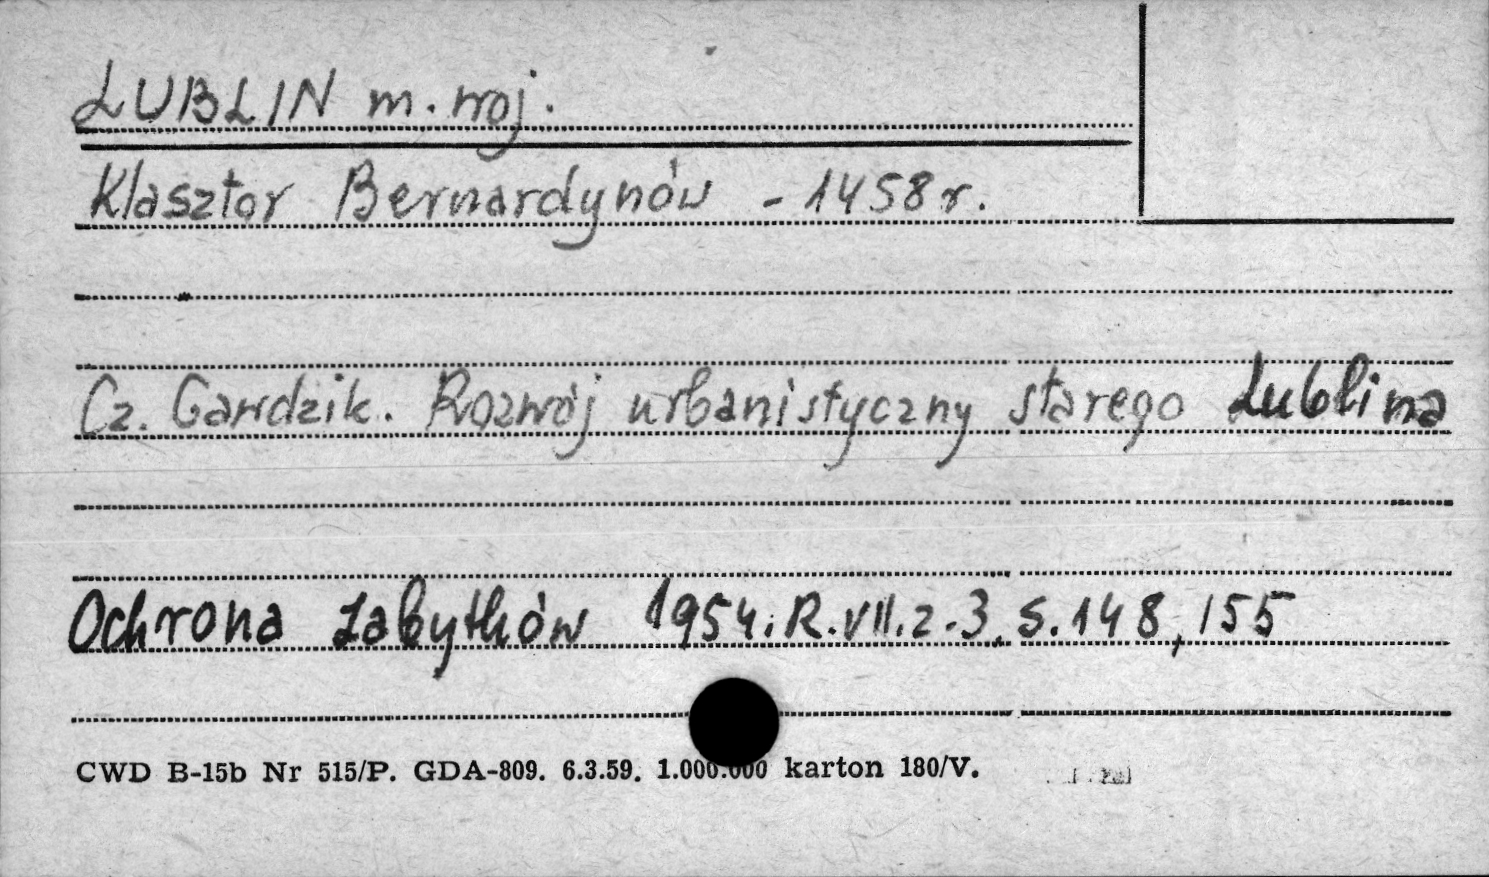 LUBLIN m. woj.
Klasztor Bernardynów - 1458 r.
Cz. Gawdzik. Rozwój urbanistyczny starego Lublina
Ochrona zabytków 1954. R. VII. z. 3. s. 148, 155
CWD B-15b Nr 515/P. GDA-809. 6.3.59. 1.000.000 karton 180/V.